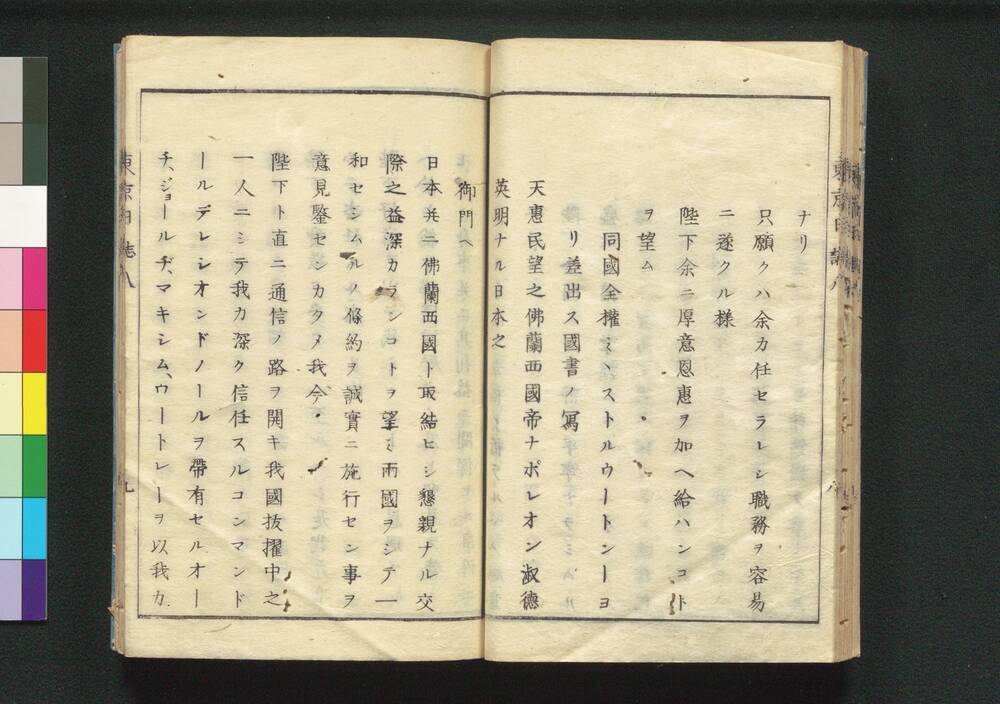 ナリ
只願クハ余カ任セラレシ職務ヲ容易
ニ遂クル様
陛下余ニ厚意恩惠ヲ加ヘ給ハンコト
ヲ望ム
同國全權ミニストルウートレーヨ
リ差出ス國書ノ寫
天惠民望之佛蘭西國帝ナポレオン淑德
英明ナル日本之
御門ヘ
日本并ニ佛蘭西國ト取結ヒシ懇親ナル交
際之益深カラシコトヲ望ミ両國ヲシテ一
和セシムルノ條約ヲ誠實ニ施行セン事ヲ
意見鑒センカタメ我今
陛下ト直ニ通信ノ路ヲ開キ我國抜擢中之
一人ニシテ我カ深ク信任スルコンマンド
ールデレシオンドノールヲ帶有セルオー
チ、ジョールヂ、マキシム、ウートレーヲ以我カ
東京日誌八
九